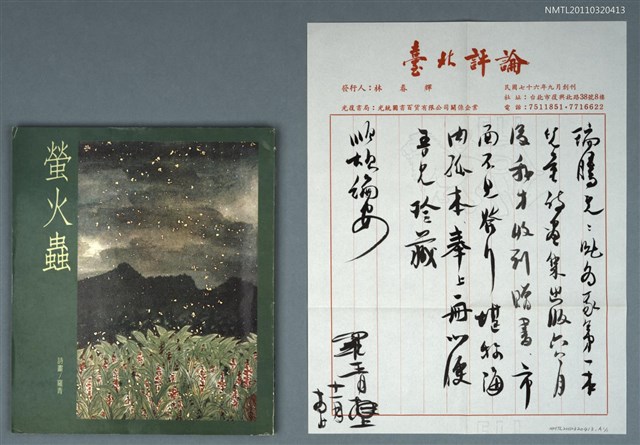 NMTL20110320413
螢火蟲
詩畫/羅青
臺北評論
發行人:林春輝
民國七十六年九月創刊
社址:台北市復興北路38號8樓
光復書局‧光統圖書百貨有限公司關係企業
電話:7511851‧7716622
瑞騰兄:此為我第一本
兒童詩畫集出版六個月
後我才收到贈書,市
面不見發行堪稱海
內孤本,奉上一冊以便
吾兄珍藏
順頌編安
羅青
十二月